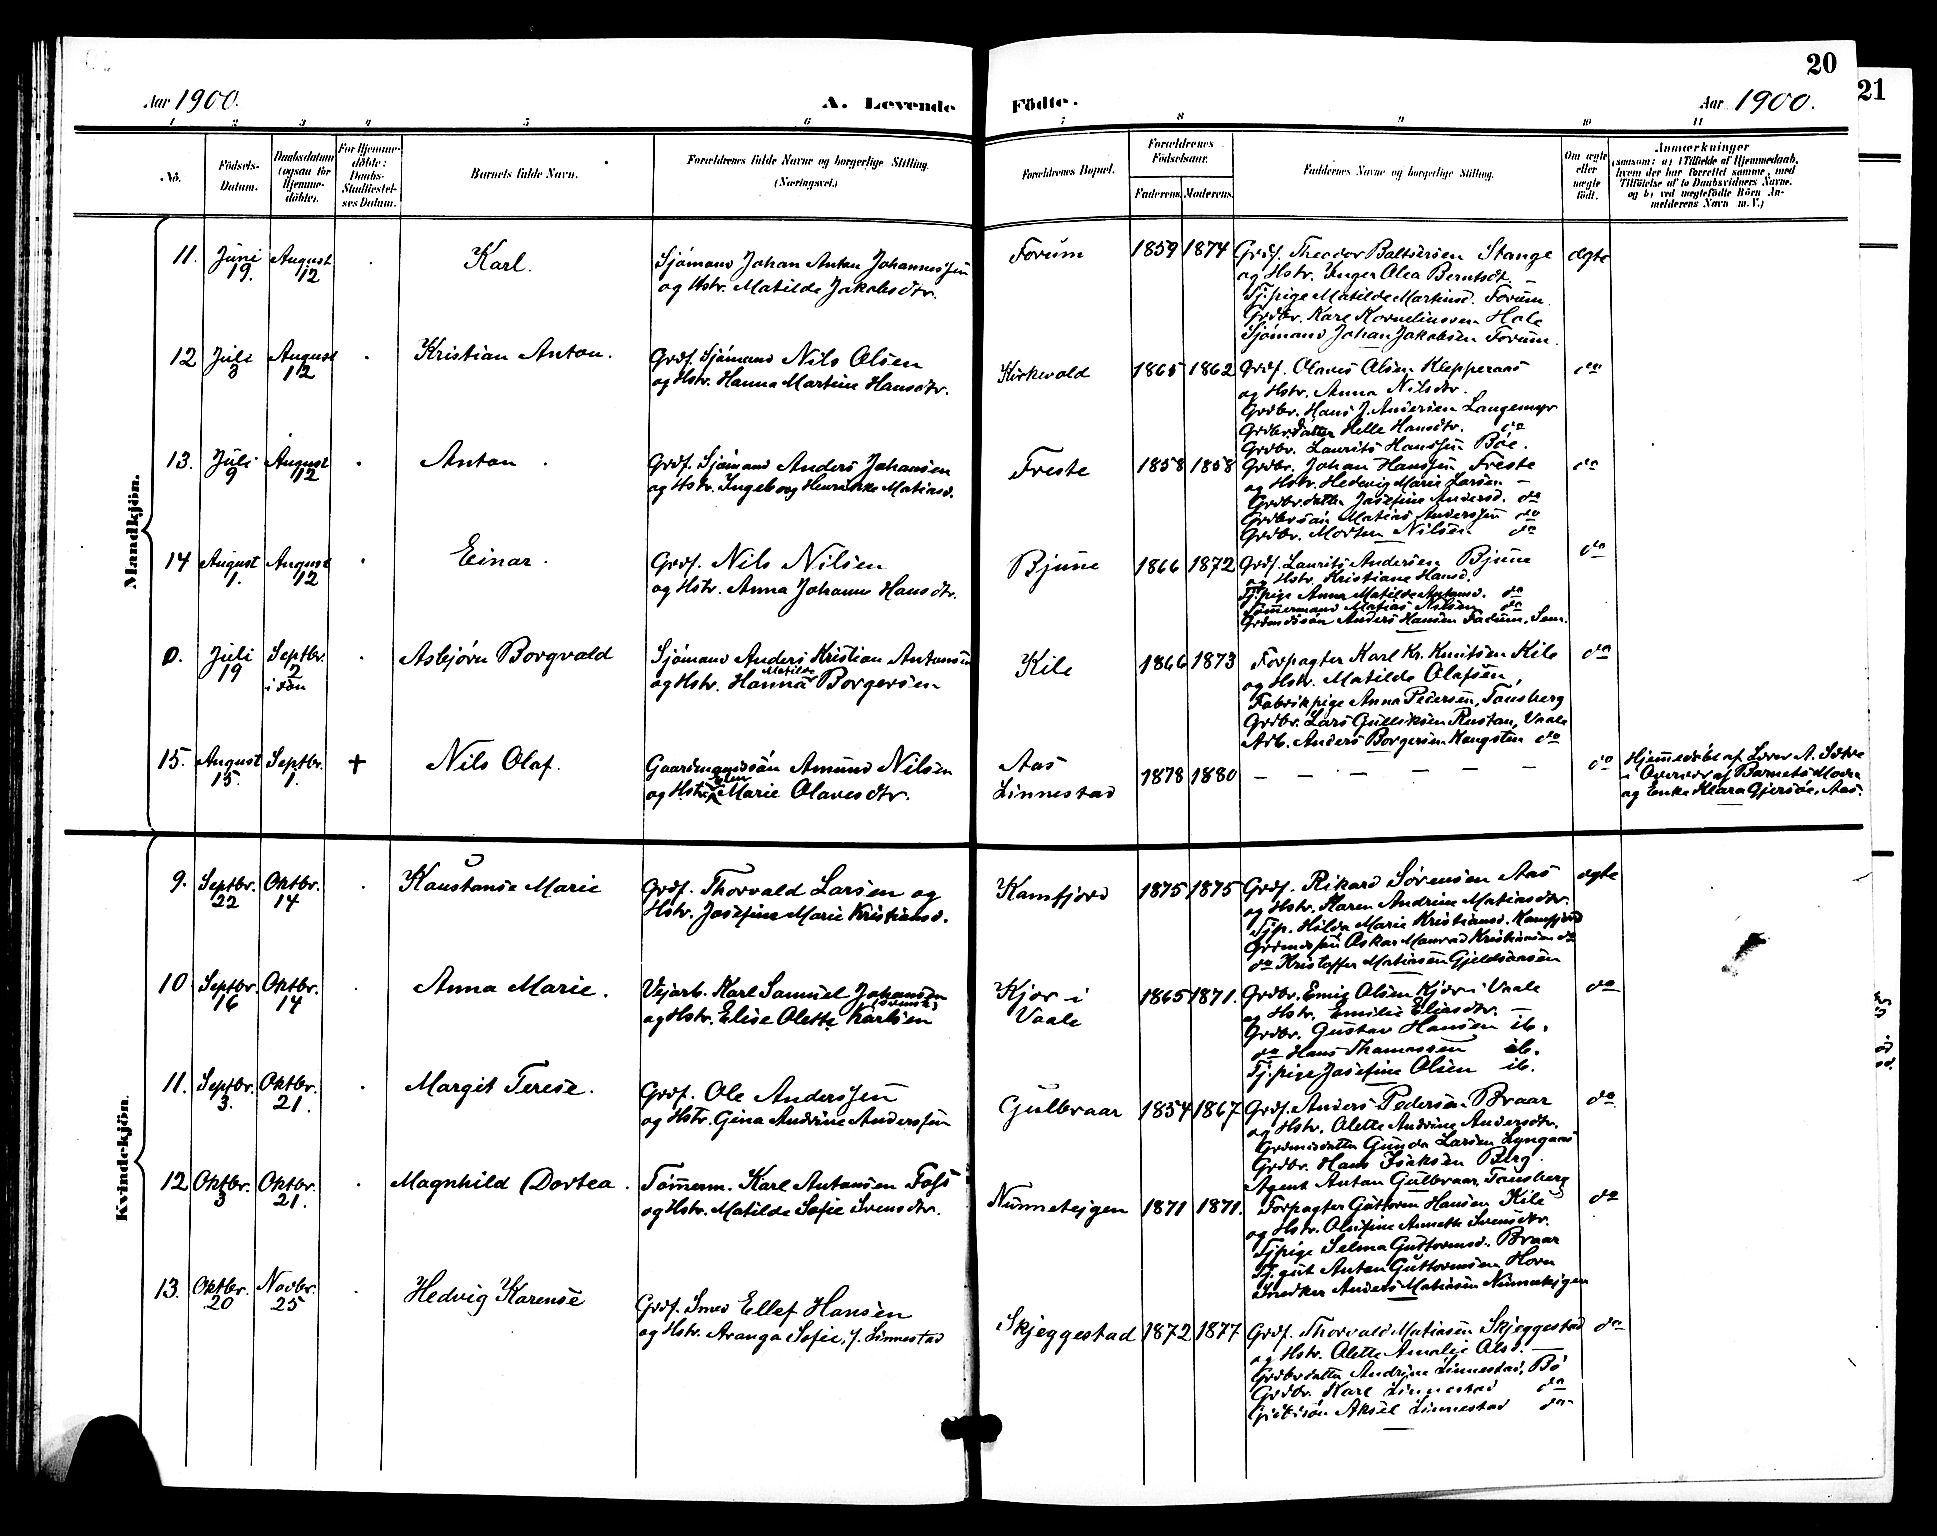 20
21
Aar 1900.
A. Levende Födte.
Aar 1900.
1 2 3 4 5 6 7 8 9 10 11
No.
Födsels-
Datum.
Daabsdatum
(ogsaa for
Hjemme-
döbte).
For Hjemme-
döbte:
Daabs-
Stadfæstel-
ses Datum.
Barnets fulde Navn.
Forældrenes fulde Navne og borgerlige Stilling.
(Næringsvei.)
Forældrenes Bopæl.
Forældrenes
Födselsaar.
Faderens. Moderens.
Faddernes Navne og borgerlige Stilling.
Om ægte
eller
uægte
født.
Anmærkninger
(saasom: a) i Tilfælde af Hjemmedaab,
hvem der har forrettet samme, med
Tilføielse af to Daabsvidners Navne.
og b) ved uægtefødte Börn An-
melderens Navn m. V.)
Mandkjön.
11. Juni 19. August 12 Karl.
Sjömand Johan Anton Johannessen
og Hstr. Matilde Jakobsdtr.
Forum 1859 1874
Grdf. Theodor Baltsersen Stange
og Hstr. Inger Olea Berntsdt. –
Tj.pige Matilde Martinsd. Forum.
Grdbr. Karl Korneliussen Hole
Sjömand Johan Jakobsen Forum.
ægte
12 Juli 3 August 12 Kristian Anton.
Grdf. Sjömand Nils Olsen
og Hstr. Hanna Martine Hansdtr.
Kirkevold 1865 1862
Grdf. Olaves Olsen Klepperaas
og Hstr. Anna Nilsdtr.
Grdbr. Hans J. Andersen Langemyr
Grdbr.datter Helle Hansdtr. do
Grdbr. Laurits Hanssen Böe.
do
13. Juli 9 August 12 Anton
Grdf. Sjömand Anders Johansen
og Hstr. Ingeborg Henrikke Matiasd.
Freste 1858 1858
Grdbr. Johan Hanssen Freste
og Hstr. Hedevig Marie Larsen –
Grdbr.datter Josefine Andersd. do
Grdbr.sön Matias Anderssen do
Grdbr. Morten Nilsen do
do
14 August 1. August 12 Einar.
Grdf. Nils Nilsen
og Hstr. Anna Johanne Hansdtr.
Bjune 1866 1872
Grdf. Laurits Andersen Bjune
og Hstr. Kristiane Hansd.
Tj.pige Anna Matilde Antonsd. do
Tömmermand Matias Nilsen do
Grdmdssön Anders Hansen Fadum, Sem.
do
0. Juli 19 Septbr. 2 Asbjörn Borgvald
Sjömand Anders Kristian Antonsen
og Hstr. Hanna Matilde Borgersen
Kile 1866 1873
Forpagter Karl Kr. Knutsen Kile
og Hstr. Matilde Olafsen,
Fabrikpige Anna Pedersen, Tönsberg
Grdbr. Lars Gulliksen Rustan, Vaale
Arb. Anders Borgersen Haugsten do
do
15. August 15. Septbr. 1. + Nils Olaf.
Gaardmandssön Amund Nilsen
og Hstr. Elen Marie Olavesdtr.
Aas
Linnestad
1878 1880
– – – – – –
do
Hjemmedöbt af Lærer A. Sætre
i Overvær af Barnets Moder
og Enke Klara Gjersöe, Aas.
Kvindekjön.
9. Septbr. 22 Oktbr. 14 Konstanse Marie
Grdf. Thorvald Larsen og
Hstr. Josefine Marie Kristiansd.
Kamfjord 1875 1875
Grdf. Rikard Sørensen Aas
og Hstr. Karen Andrine Matiasdtr.
Tjp. Hilda Marie Kristiansd. Kamfjord
Grdmdssön Oskar Konrad Kristiansen do
do Kristoffer Matiasen Gjeldsaasen
ægte
10 Septbr. 16 Oktbr. 14 Anna Marie.
Vejarb. Karl Samuel Johansen
(svensk)
og Hstr. Elise Olette Karlsen
Kjær i
Vaale
1865 1871.
Grdbr. Emig Olsen Kjær i Vaale
og Hstr. Emilie Eliasdtr. –
Grdbr. Gustav Hansen ib.
do Hans Thomassen ib.
Tj.pige Josefine Olsen ib.
do
11. Septbr. 3. Oktbr. 21. Margit Terese.
Grdf. Ole Anderssen
og Hstr. Gina Andrine Anderssen
Gulbraar 1854 1867
Grdf. Anders Pedersen Braar
og Hstr. Olette Andrine Andersdtr.
Grdmdsdatter Gunda Larsen Lyngaas
Grdbr. Hans Isaksen Berg.
Agent Anton Gulbraar, Tönsberg
do
12 Oktbr. 3 Oktbr. 21. Magnhild Dortea.
Tömmerm. Karl Antonsen Foss
og Hstr. Matilde Sofie Svensdtr.
Nunnetejgen 1871 1871.
Forpagter Guttorm Hansen Kile
og Hstr. Olufine Annette Svensdtr.
Tjpige Selma Guttormsd. Braar
Tj.gut Anton Guttormsen Horn
Snedker Anders Matiasen Nunnetejgen
do
13. Oktbr. 20 Novbr. 25 Hedvig Karense
Grdf. Smed Ellef Hansen
og Hstr. Aranga Sofie, f. Linnestad
Skjeggestad 1872 1877
Grdf. Thorvald Matiasen Skjeggestad
og Hstr. Olette Amalie Olsd. –
Grdbrdatter Andrine Linnestad, Bö
Grdbr. Karl Linnestad do
Grdbrsön Aksel Linnestad do
do